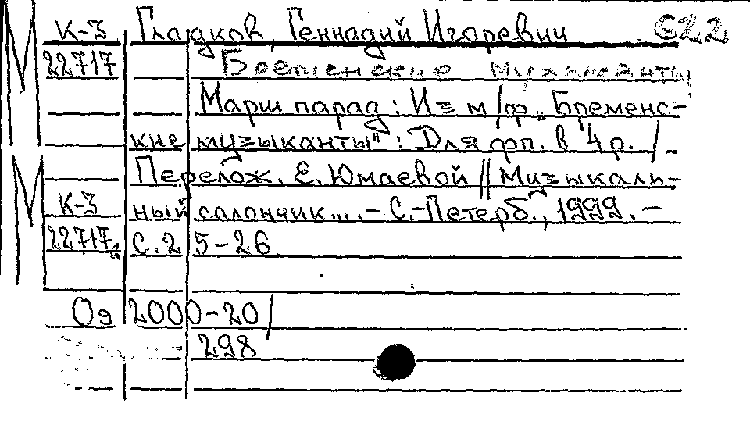 К-3 Гладков, Геннадий Игоревич 622
22717 Бременские музыканты
Марш парад: Из м/ф „Бременс-
кие музыканты": Для фп. в 4 р. /
Перелож. Е. Юмаевой // Музыкаль-
К-3 ный салончик... - С.-Петерб., 1999. -
22717 С. 25-26
Од 2000-20/
298